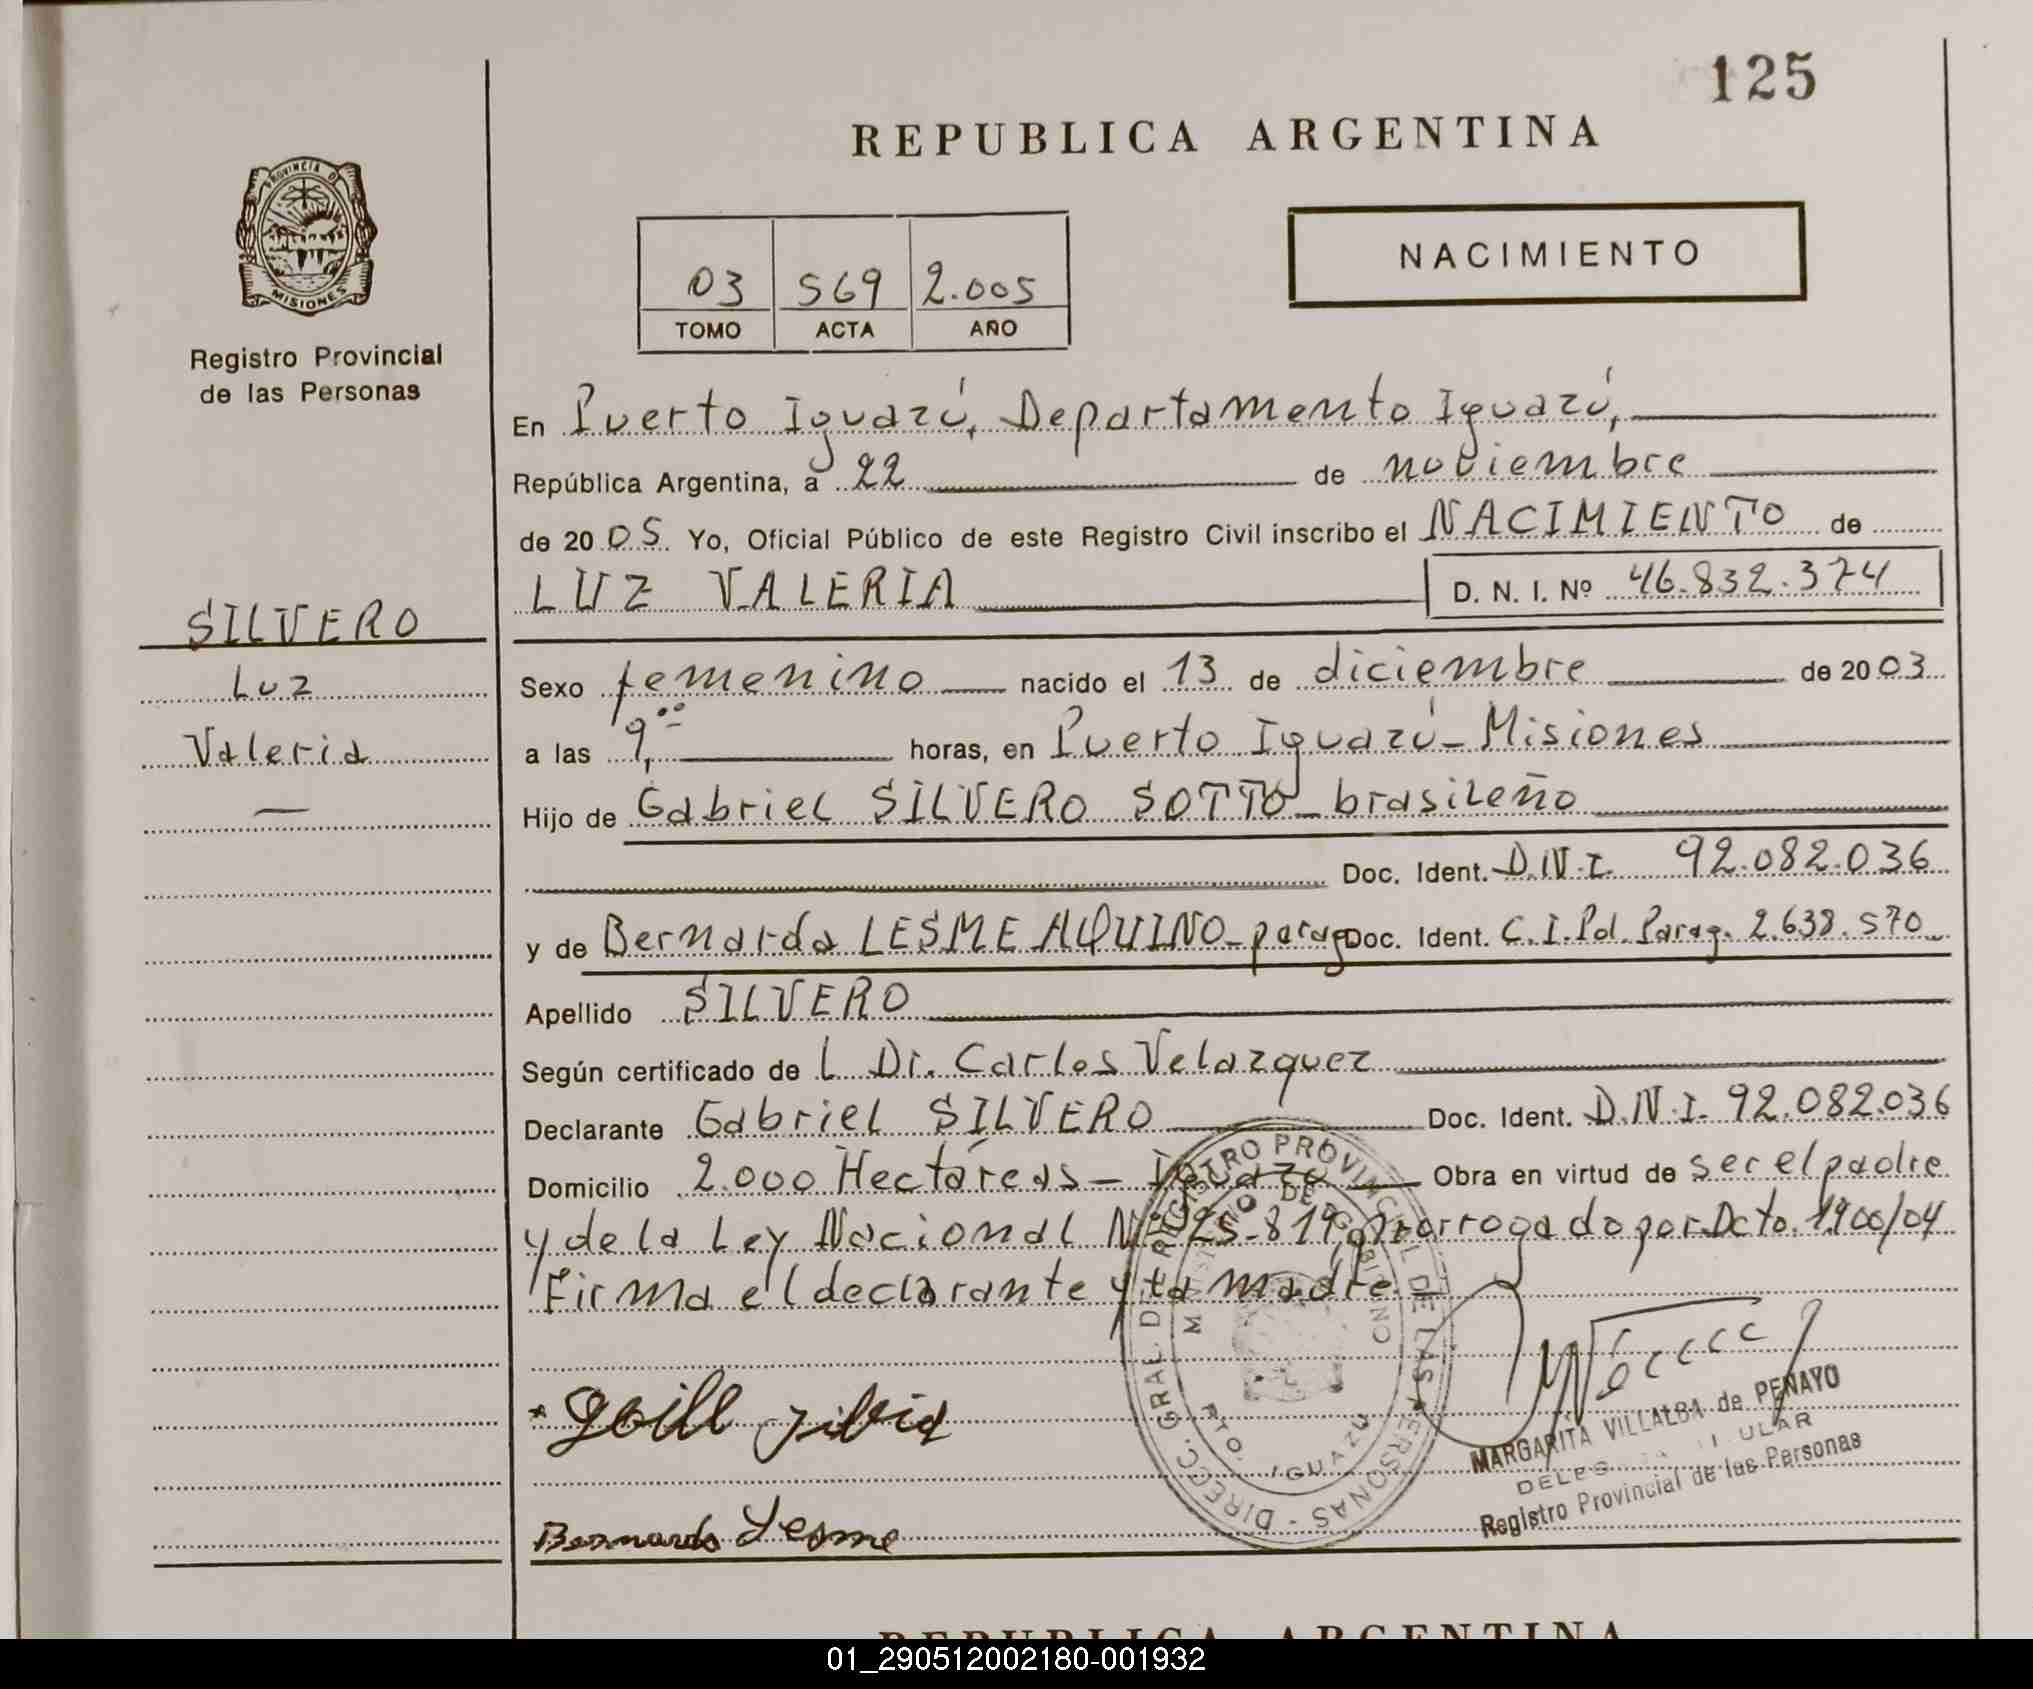 125
REPUBLICA ARGENTINA
PROVINCIA D
MISIONES
Registro Provincial
de las Personas
03 569 2.005
TOMO ACTA AÑO
NACIMIENTO
En Puerto Iguazú, Departamento Iguazú,
República Argentina, a 22 de noviembre
de 20 05 Yo, Oficial Público de este Registro Civil inscribo el NACIMIENTO de
LUZ VALERIA D. N. I. Nº 46.832.374
SILVERO
Luz
Valeria
Sexo femenino nacido el 13 de diciembre de 20 03
a las 9,00 horas, en Puerto Iguazú - Misiones
Hijo de Gabriel SILVERO SOTTO - brasileño
Doc. Ident. D.N.I. 92.082.036
y de Bernarda LESME AQUINO - parag Doc. Ident. C.I.Pol.Parag. 2.638.570
Apellido SILVERO
Según certificado de L Dr. Carlos Velazquez
Declarante Gabriel SILVERO Doc. Ident. D.N.I. 92.082.036
Domicilio 2.000 Hectáreas - Iguazú Obra en virtud de ser el padre
y de la Ley Nacional Nº 25-819, prorrogado por Dcto. 1900/04
Firma el declarante y la madre
DIRECC. GRAL. DE REGISTRO PROVINCIAL DE LAS PERSONAS -
MINISTERIO DE GOBIERNO
PTO. IGUAZU
Bernarda Lesme
MARGARITA VILLALBA de PENAYO
Registro Provincial de las Personas
REPUBLICA ARGENTINA
01_290512002180-001932